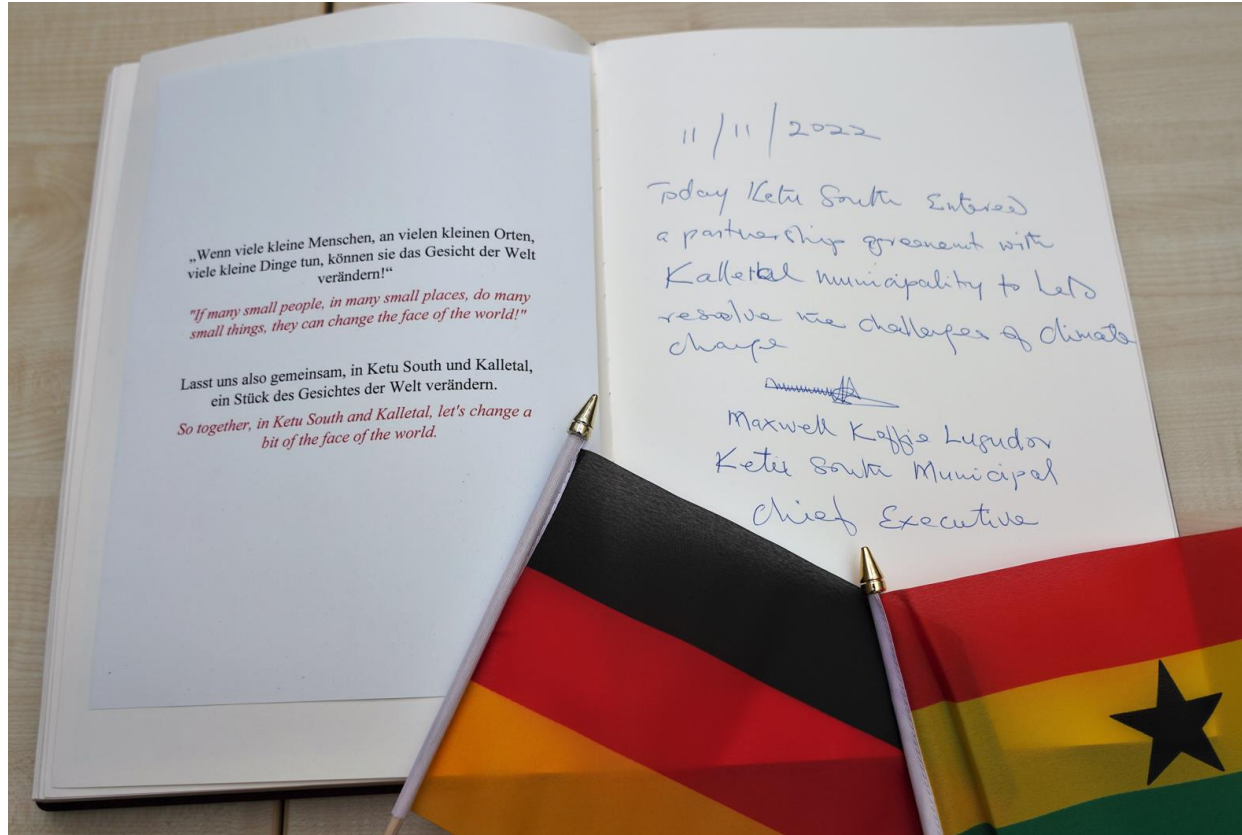 „Wenn viele kleine Menschen, an vielen kleinen Orten,
viele kleine Dinge tun, können sie das Gesicht der Welt
verändern!“
"If many small people, in many small places, do many
small things, they can change the face of the world!"
Lasst uns also gemeinsam, in Ketu South und Kalletal,
ein Stück des Gesichtes der Welt verändern.
So together, in Ketu South and Kalletal, let's change a
bit of the face of the world.
11/11/2022
Today Ketu South Entered
a partnership agreement with
Kalletal municipality to
resolve the challenges of climate
change
Maxwell Koffie Lugudor
Ketu South Municipal
Chief Executive